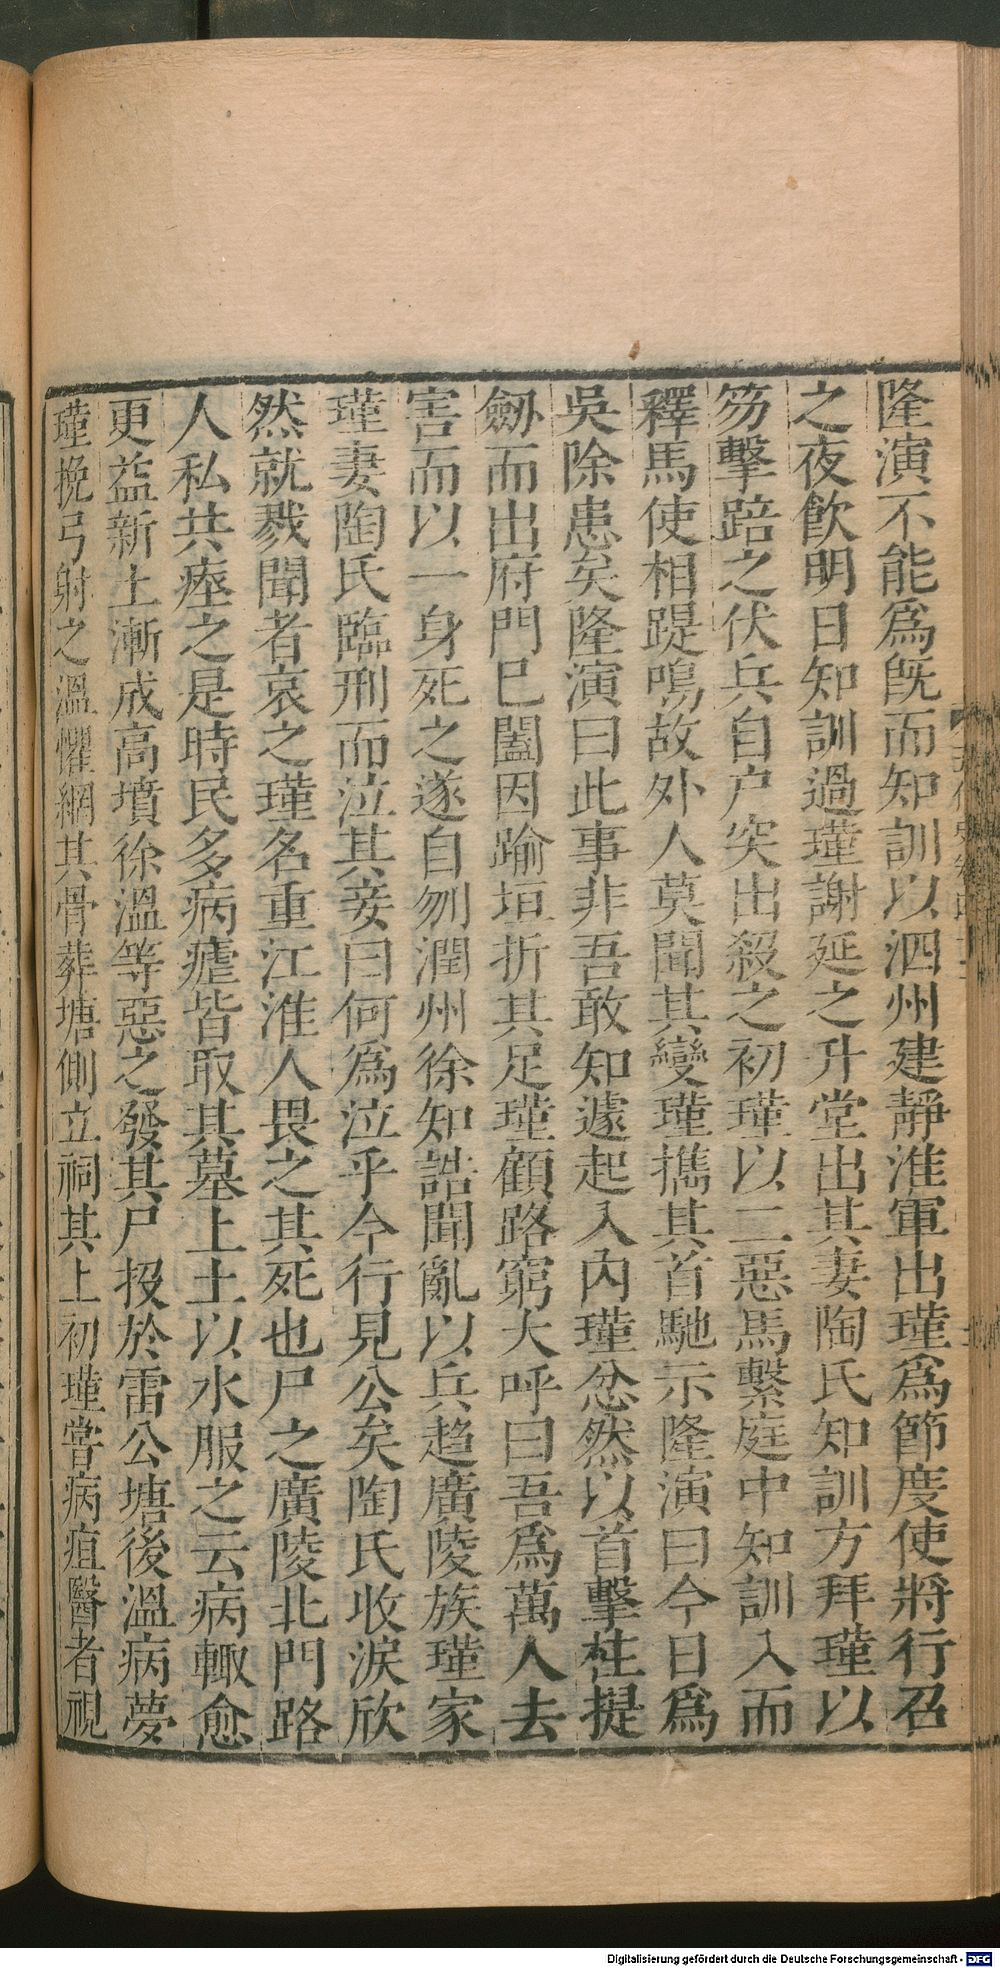 隆演不能爲旣而知訓以泗州建靜淮軍出瑾爲節度使將行召
之夜飮明日知訓過瑾謝延之升堂出其妻陶氏知訓方拜瑾以
笏擊踣之伏兵自户突出殺之初瑾以二惡馬繫庭中知訓入而
釋馬使相踶鳴故外人莫聞其變瑾攜其首馳示隆演曰今日爲
吳除患矣隆演曰此事非吾敢知遽起入內瑾忿然以首擊柱提
劒而出府門已闔因踰垣折其足瑾顧路窮大呼曰吾爲萬人去
害而以一身死之遂自刎潤州徐知誥聞亂以兵趋廣陵族瑾家
瑾妻陶氏臨刑而泣其妾曰何爲泣乎今行見公矣陶氏收淚欣
然就戮聞者哀之瑾名重江淮人畏之其死也尸之廣陵北門路
人私共瘞之是時民多病瘧皆取其墓上土以水服之云病輙愈
更益新土漸成高墳徐溫等惡之發其尸投於雷公塘後溫病夢
瑾挽弓射之溫懼網其骨葬塘側立祠其上初瑾嘗病疽醫者視
Digitalisierung gefördert durch die Deutsche Forschungsgemeinschaft - DFG